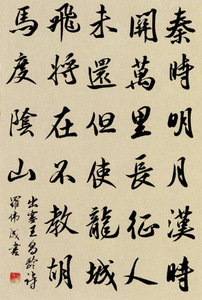 秦時明月漢時
關萬里長征人
未還但使龍城
飛將在不教胡
馬度陰山
出塞王昌齡詩
羅佛書